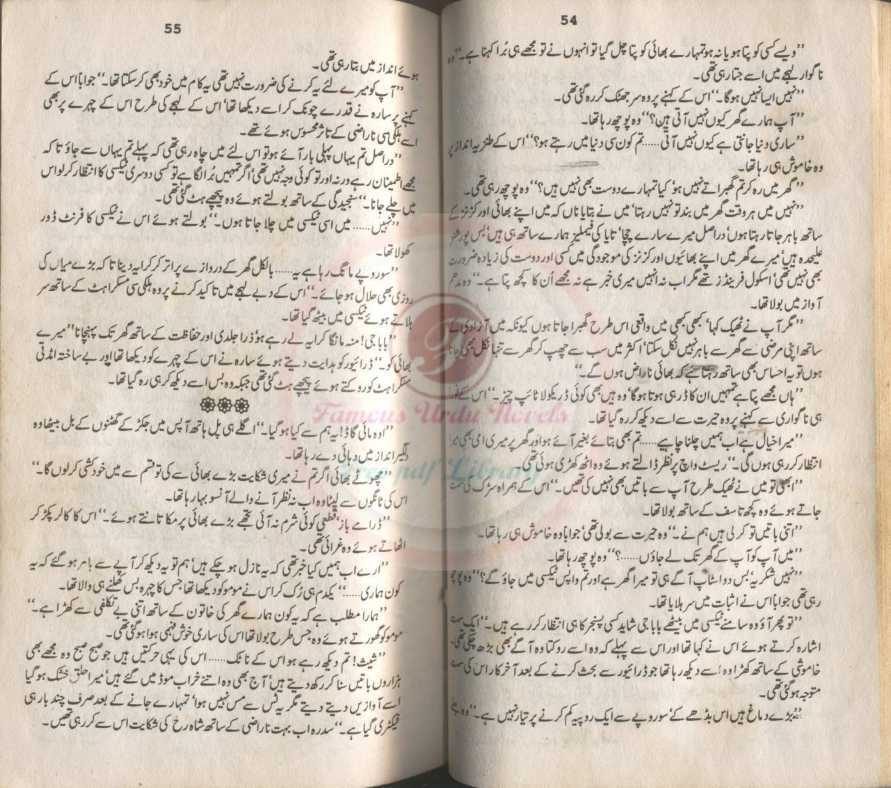 54
”ویسے کسی کو پتا ہو یا نہ ہو تمہارے بھائی کو پتا چل گیا تو انہوں نے تو مجھے ہی بُرا کہنا ہے۔“ وہ
ناگوار لہجے میں اسے جتا رہی تھی۔
”نہیں ایسا نہیں ہوگا۔“ اس کے کہنے پر وہ سر جھٹک کر رہ گئی تھی۔
”آپ ہمارے گھر کیوں نہیں آتی ہیں؟“ وہ پوچھ رہا تھا۔
”ساری دنیا جانتی ہے کیوں نہیں آتی...... تم کون سی دنیا میں رہتے ہو؟“ اس کے طنزیہ انداز پر
وہ خاموش ہی رہا تھا۔
”گھر میں رہ کر تم گھبراتے نہیں ہو‘ کیا تمہارے دوست بھی نہیں ہیں؟“ وہ پوچھ رہی تھی۔
”نہیں میں ہر وقت گھر میں بند تو نہیں رہتا‘ میں نے بتایا ناں کہ میں اپنے بھائی اور کزنز کے
ساتھ باہر جاتا رہتا ہوں‘ دراصل میرے سارے چچا‘ تایا کی فیملیز ہمارے ساتھ ہی ہیں‘ بس پورشنز
علیحدہ ہیں‘ میرے گھر میں اپنے بھائیوں اور کزنز کی موجودگی میں کسی اور دوست کی زیادہ ضرورت
بھی نہیں تھی‘ اسکول فرینڈز تھے مگر اب نہ انہیں میری خبر ہے نہ مجھے اُن کا کچھ پتا ہے۔“ وہ مدھم
آواز میں بولا تھا۔
”مگر آپ نے ٹھیک کہا‘ کبھی کبھی میں واقعی اس طرح گھبرا جاتا ہوں کیونکہ میں آزادی کے
ساتھ اپنی مرضی سے گھر سے باہر نہیں نکل سکتا‘ اکثر میں سب سے چھپ کر گھر سے تنہا نکل بھی جاتا
ہوں تو یہ احساس بھی ساتھ رہتا ہے کہ بھائی ناراض ہوں گے۔“
”ہاں مجھے پتا ہے تمہیں ان کا ڈر ہی ہوتا ہوگا‘ وہ ہیں بھی کوئی ڈریکولا ٹائپ چیز۔“ اس کے
ہی ناگواری سے کہنے پر وہ حیرت سے اسے دیکھ کر رہ گیا تھا۔
”میرا خیال ہے اب ہمیں چلنا چاہیے...... تم بھی بتائے بغیر آئے ہو اور گھر پر میری امی بھی
انتظار کر رہی ہوں گی۔“ ریسٹ واچ پر نظر ڈالتے ہوئے وہ اٹھ کھڑی ہوئی تھی۔
”ابھی تو میں نے ٹھیک طرح آپ سے باتیں بھی نہیں کی تھیں۔“ اس کے ہمراہ سڑک کی سمت
جاتے ہوئے وہ کچھ تاسف کے ساتھ بولا تھا۔
”اتنی باتیں تو کر لی ہیں ہم نے۔“ وہ حیرت سے بولی تھی‘ جواباً وہ خاموش ہی رہا تھا۔
”میں آپ کو آپ کے گھر تک لے جاؤں......؟“ وہ پوچھ رہا تھا۔
”نہیں شکریہ‘ بس دو اسٹاپ آگے ہی تو میرا گھر ہے اور تم واپس ٹیکسی میں جاؤ گے؟“ وہ پوچھ
رہی تھی جواباً اس نے اثبات میں سر ہلایا تھا۔
”تو پھر آؤ وہ سامنے ٹیکسی میں بیٹھے بابا جی شاید کسی پسنجر کا ہی انتظار کر رہے ہیں۔“ ایک سمت
اشارہ کرتے ہوئے اس نے کہا تھا اور اس سے پہلے کہ وہ اسے روکتا وہ آگے بھی بڑھ چکی تھی
خاموشی کے ساتھ کھڑا وہ اُسے دیکھ رہا تھا جو ڈرائیور سے بحث کرنے کے بعد آخر کار اس کی سمت
متوجہ ہو گئی تھی۔
”بڑے دماغ ہیں اس بڈھے کے‘ سو روپے سے ایک روپیہ کم کرنے پر تیار نہیں ہے۔“ وہ
55
ہوئے انداز میں بتا رہی تھی۔
”آپ کو میرے لئے یہ کرنے کی ضرورت نہیں تھی یہ کام میں خود بھی کر سکتا تھا۔“ جواباً اس کے
کہنے پر سارہ نے قدرے چونک کر اسے دیکھا تھا‘ اس کے لہجے کی طرح اس کے چہرے پر بھی
اسے ہلکی سی ناراضی کے تاثر محسوس ہوئے تھے۔
”دراصل تم یہاں پہلی بار آئے ہو تو اس لئے میں چاہ رہی تھی کہ پہلے تم یہاں سے جاؤ تا کہ
مجھے اطمینان رہے ورنہ اور تو کوئی وجہ نہیں تھی‘ اگر تمہیں بُرا لگا ہے تو کسی دوسری ٹیکسی کا انتظار کر لو اس
میں چلے جانا۔“ سنجیدگی کے ساتھ بولتے ہوئے وہ پیچھے ہٹ گئی تھی۔
”نہیں...... میں اسی ٹیکسی میں چلا جاتا ہوں۔“ بولتے ہوئے اس نے ٹیکسی کا فرنٹ ڈور
کھولا تھا۔
”سو روپے مانگ رہا ہے یہ...... بالکل گھر کے دروازے پر اتر کر کرایہ دینا تا کہ بڑے میاں کی
روزی بھی حلال ہو جائے۔“ اس کے دبے لہجے میں تاکید کرنے پر وہ ہلکی سی مسکراہٹ کے ساتھ سر
ہلاتے ہوئے ٹیکسی میں بیٹھ گیا تھا۔
”بابا جی! منہ مانگا کرایہ لے رہے ہو‘ ذرا جلدی اور حفاظت کے ساتھ گھر تک پہنچانا‘ میرے
بھائی کو۔“ ڈرائیور کو ہدایت دیتے ہوئے سارہ نے اس کے چہرے کو دیکھا تھا اور بے ساختہ اُمڈتی
مسکراہٹ کو روکتے ہوئے پیچھے ہٹ گئی تھی جبکہ وہ بس اسے دیکھ کر ہی رہ گیا تھا۔
”اوہ مائی گاڈ! یہ ہم سے کیا ہو گیا۔“ اگلے ہی پل ہاتھ آپس میں جکڑ کے گھٹنوں کے بل بیٹھا وہ
انداز میں دہائی دے رہا تھا۔
”چھوٹے بھائی اگر تم نے میری شکایت بڑے بھائی سے کی تو قسم سے میں خودکشی کر لوں گا۔“
اس کی ٹانگوں سے لپٹا وہ اب نہ نظر آنے والے آنسو بہا رہا تھا۔
”ڈرامے باز‘ قطعی کوئی شرم نہ آئی تجھے بڑے بھائی پر مکا تانتے ہوئے۔“ اس کا کالر پکڑ کر
اٹھاتے ہوئے وہ غرائی تھی۔
”ارے اب ہمیں کیا خبر تھی کہ یہ نازل ہو چکے ہیں‘ ہم تو یہ دیکھ کر آپے سے باہر ہو گئے کہ یہ
کون ہماری......“ یکدم ہی رُک کر اس نے موموکو دیکھا تھا جس کا چہرہ بس کھلنے ہی والا تھا۔
”ہمارا مطلب ہے کہ یہ کون ہمارے گھر کی خاتون کے ساتھ اتنی بے تکلفی سے کھڑا ہے۔“
مومو کو گھورتے ہوئے وہ جس طرح بولا تھا اس کی ساری خوش فہمی ہوا ہو گئی تھی۔
”شیث! تم دیکھ رہے ہو اس کے ناٹک...... اس کی یہی حرکتیں ہیں جو صبح صبح وہ مجھے بھی
ہزاروں باتیں سنا کر رکھ دیتے ہیں‘ آج بھی وہ اتنے خراب موڈ میں گئے ہیں‘ میرا حلق خشک ہو گیا
اسے آوازیں دیتے دیتے مگر یہ ٹس سے مس نہیں ہوا‘ تمہارے جانے کے بعد صرف چند بار ہی
فیکٹری گیا ہے۔“ سدرہ اب بہت ناراضی کے ساتھ شاہ رخ کی شکایت اس سے کر رہی تھیں۔
Famous Urdu Novels
Free pdf Library